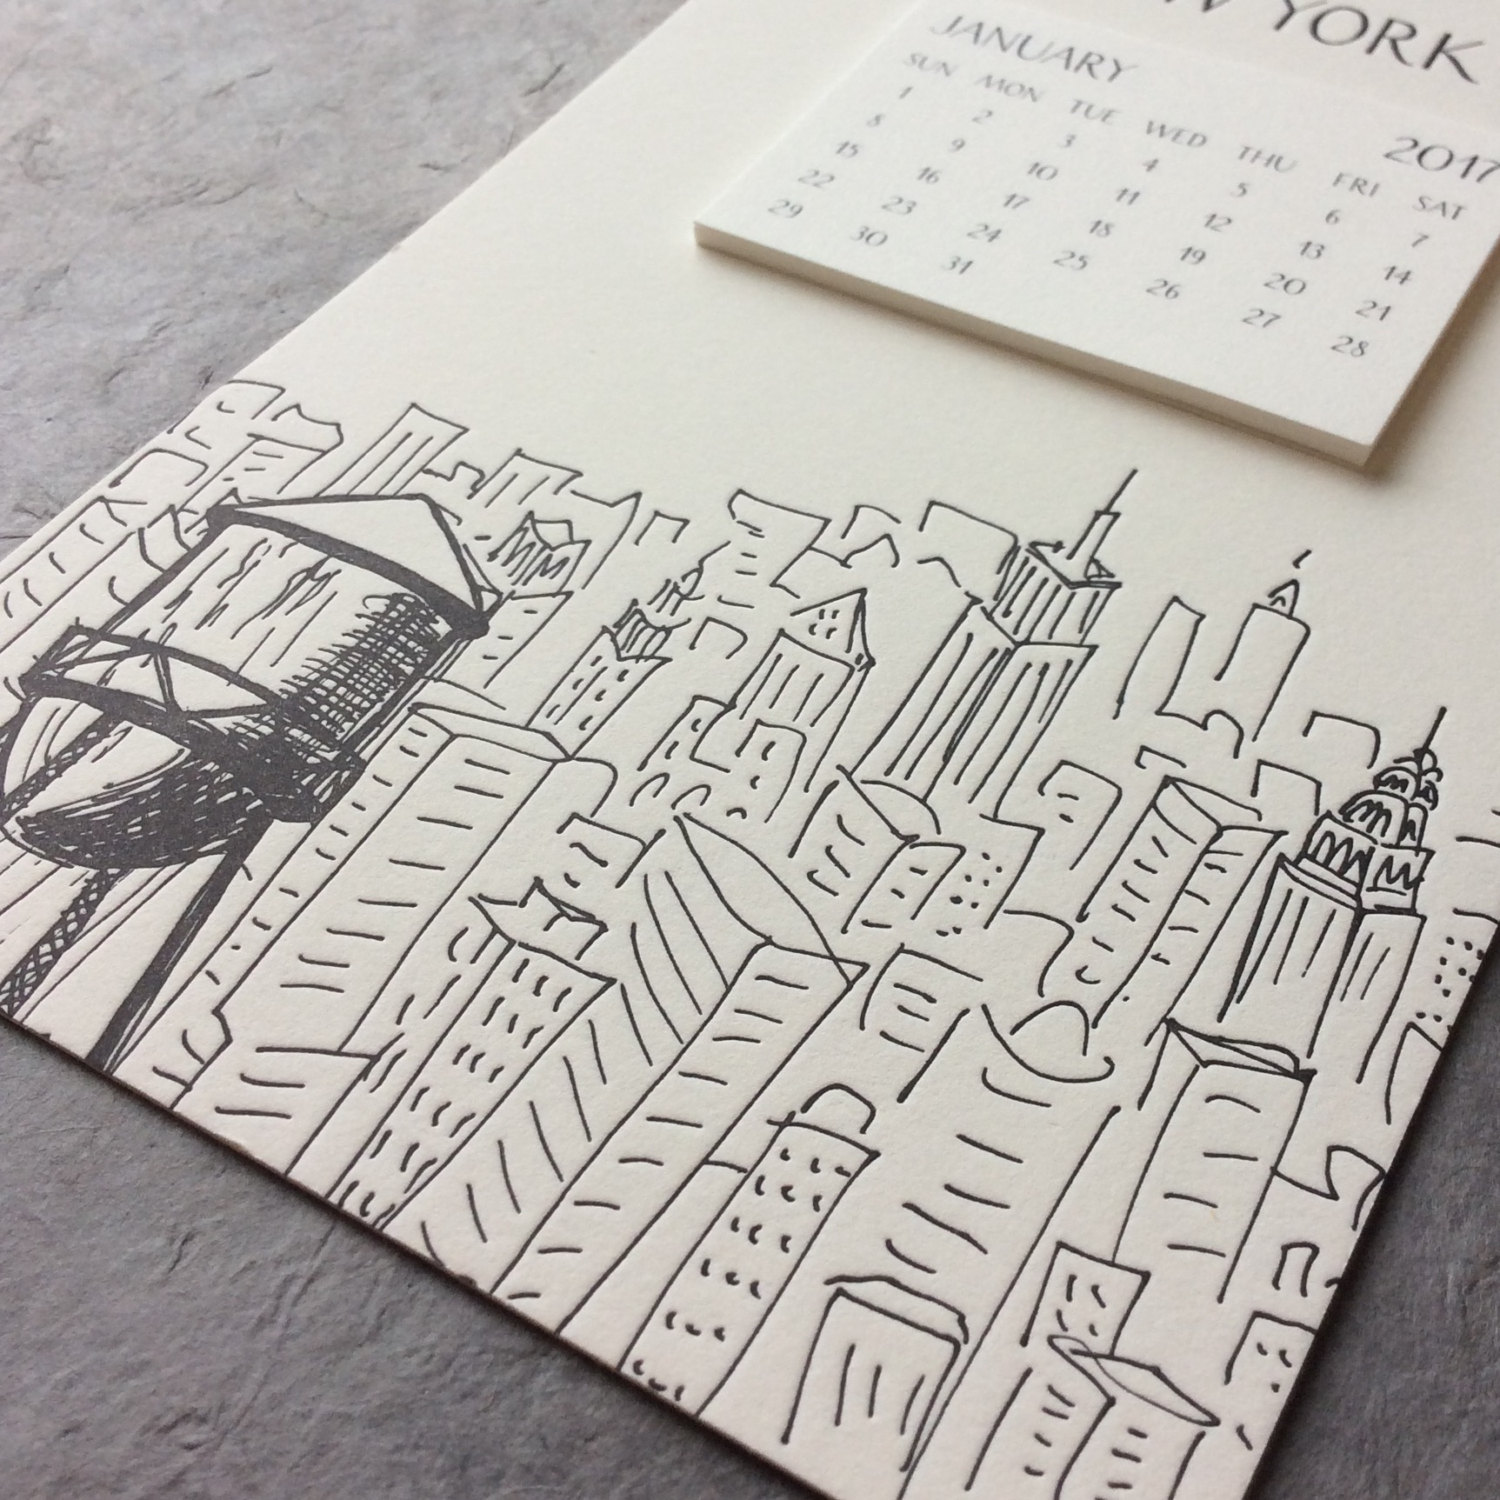 YORK
JANUARY
2017
SUN MON TUE WED THU FRI SAT
1 2 3 4 5 6 7
8 9 10 11 12 13 14
15 16 17 18 19 20 21
22 23 24 25 26 27 28
29 30 31